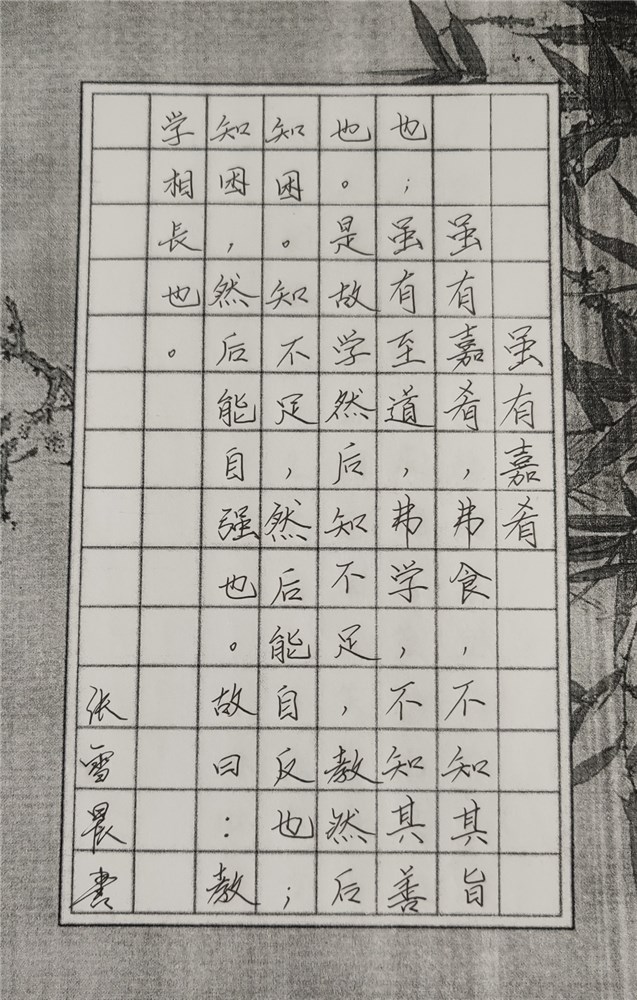 虽有嘉肴
虽有嘉肴，弗食，不知其旨
也；虽有至道，弗学，不知其善
也。是故学然后知不足，教然后
知困。知不足，然后能自反也；
知困，然后能自强也。故曰：教
学相長也。
张雪晨書